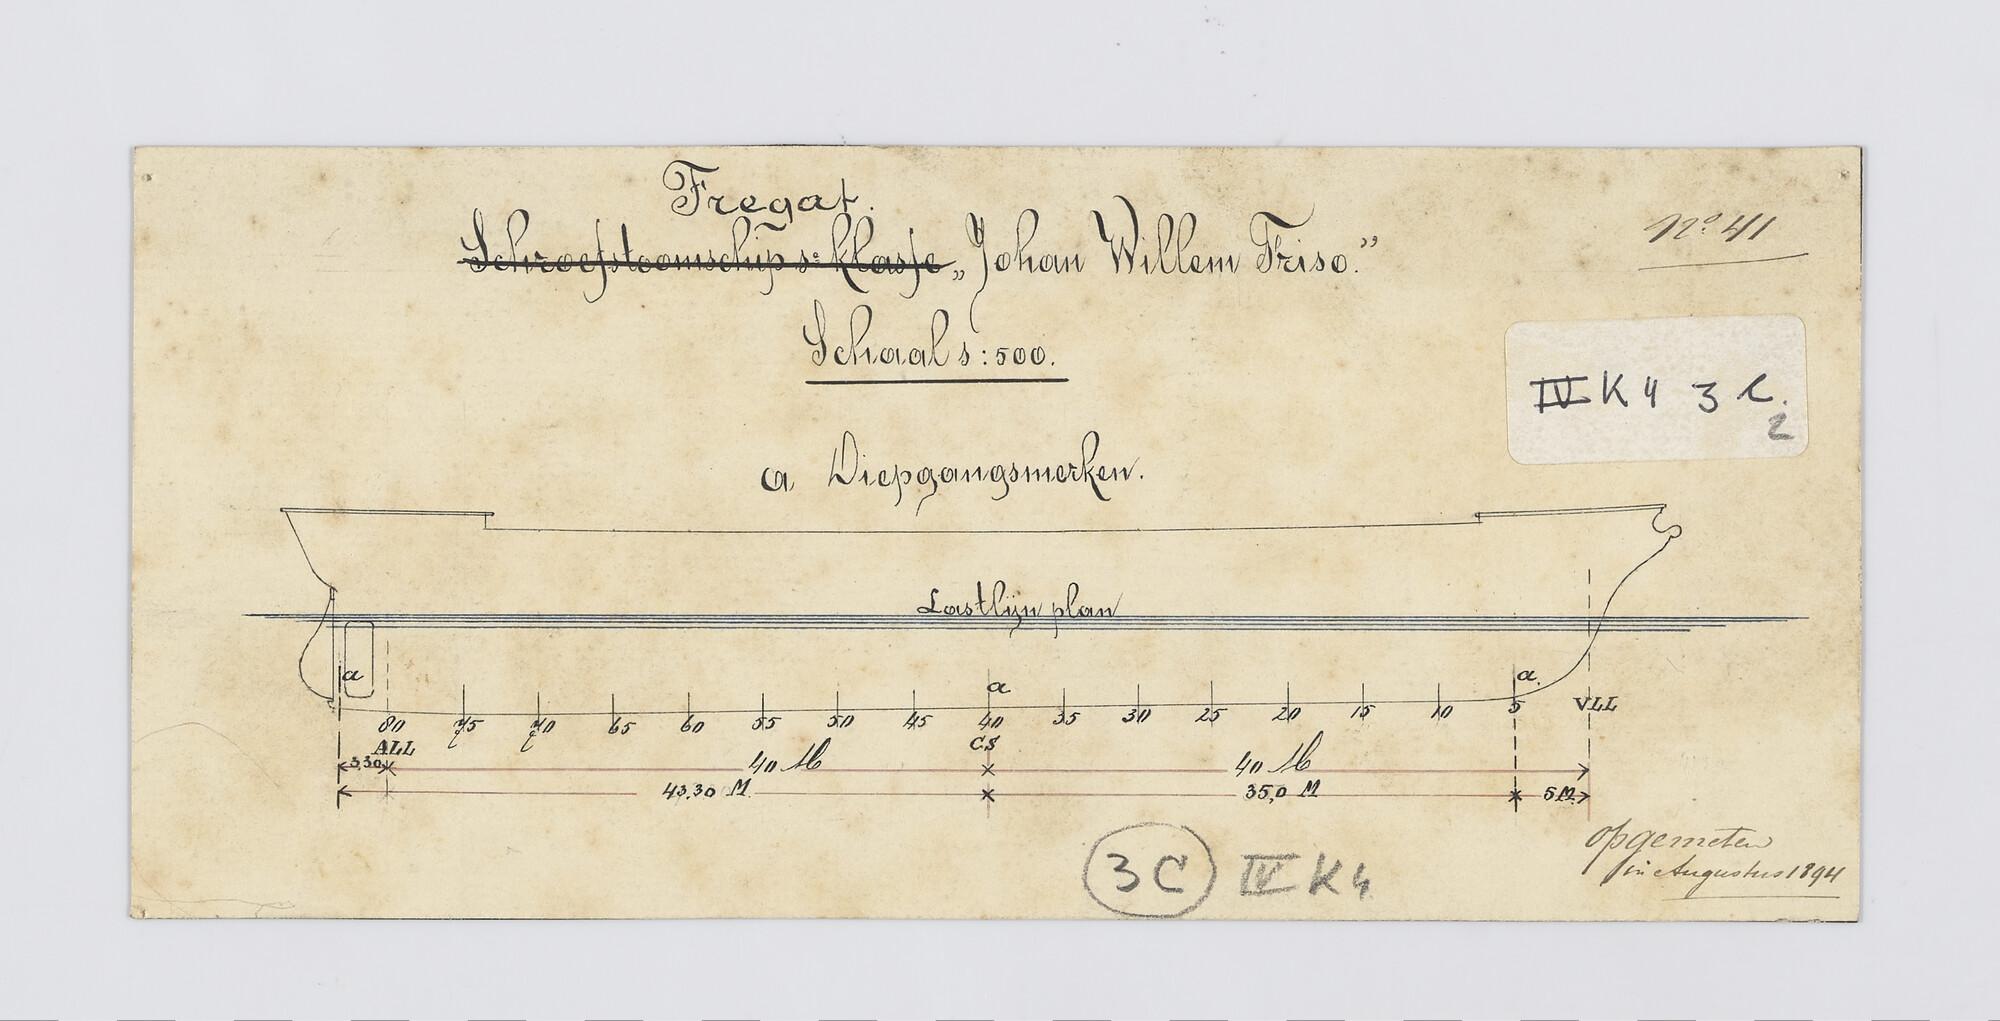 Fregat.
Schroefstoomschip 1e klasse „Johan Willem Friso.”
No 41
Schaal 1:500.
IV K 4 3 C.
2
a Diepgangsmerken.
Lastlijn plan
a a a.
80 75 70 65 60 55 50 45 40 35 30 25 20 15 10 5 VLL
ALL CS
3.30 40 M 40 M
43.30 M. 35,0 M 5 M.
opgemeten
in Augustus 1894
3C IV K 4